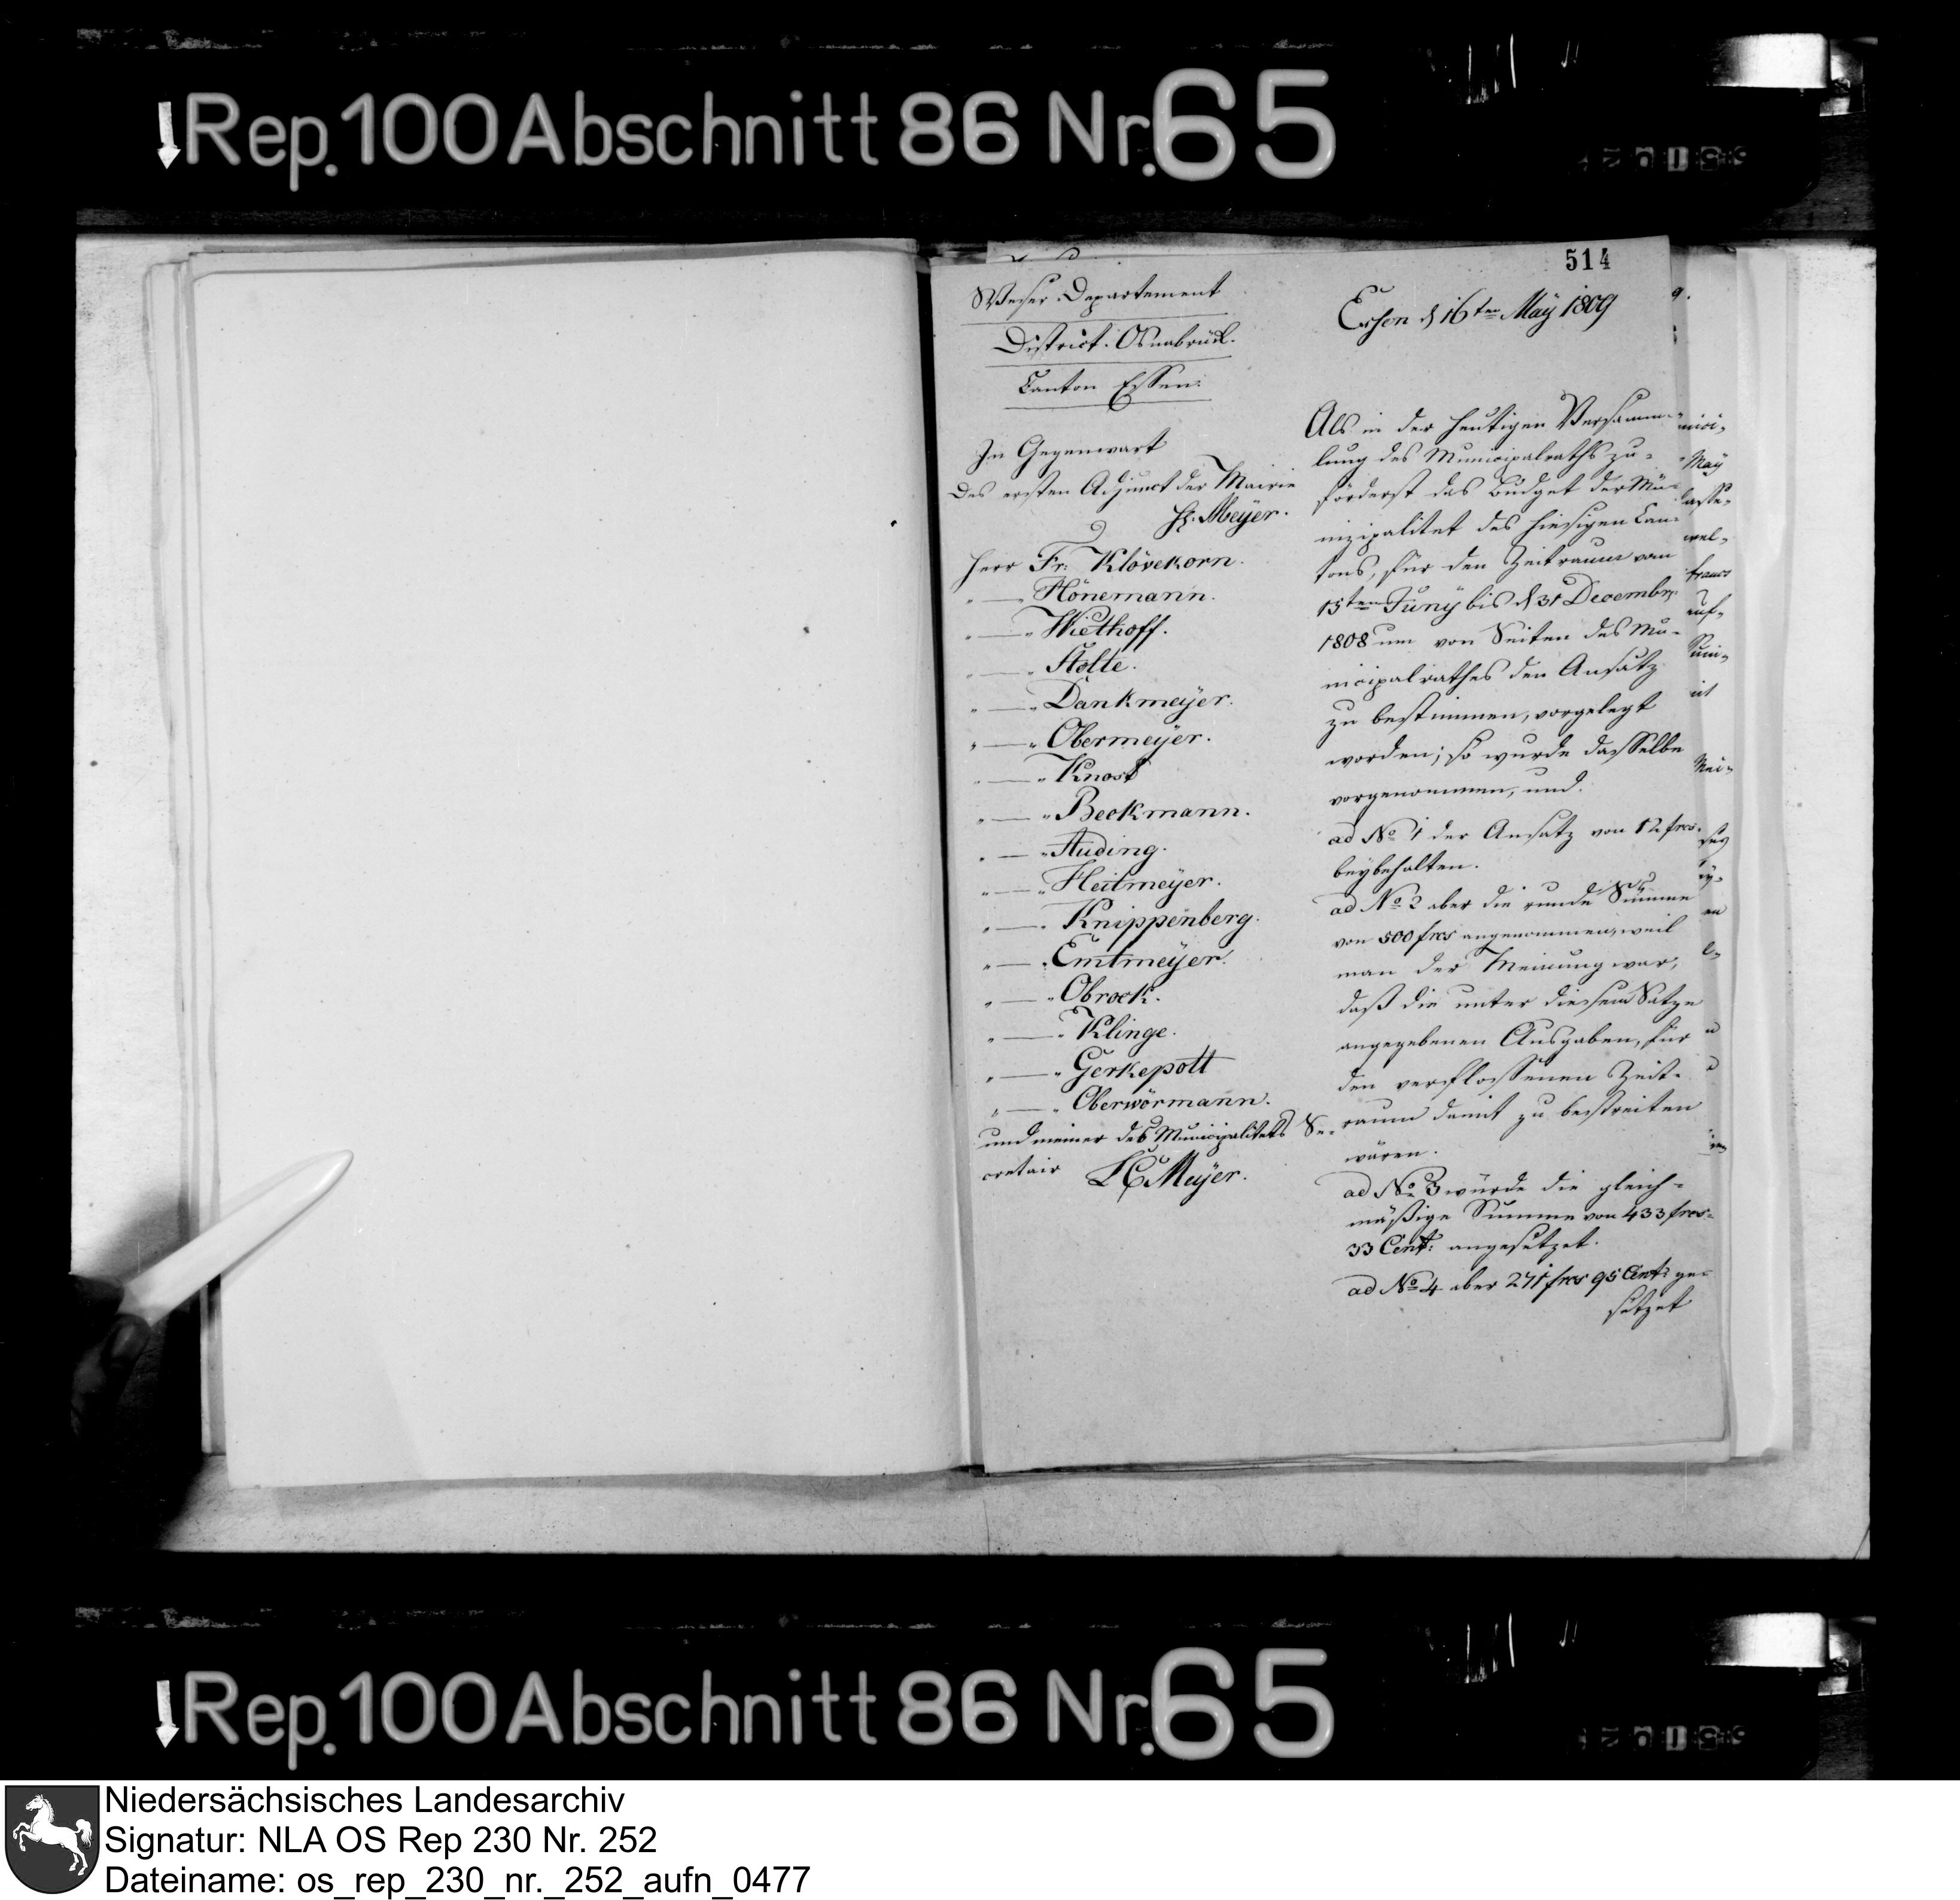 Rep. 100 Abschnitt 86 Nr. 65
514
Weser-Departement
District. Osnabrück.
Canton Essen.
In Gegenwart
des ersten Adjunct der Mairie
H. Meÿer.
Herr Fr: Klövekorn.
" — " Hönemann.
" — " Wiethoff.
" — " Stolte.
" — " Dankmeÿer.
" — " Obermeÿer.
" — " Knost
" — " Beckmann.
" — " Auding.
" — " Heitmeÿer.
" — " Knippenberg.
" — " Emtmeÿer.
" — " Obrock.
" — " Klinge.
" — " Gerkepott
" — " Oberwörmann.
und meiner des Municipalitets Se-
cretair LC Meÿer.
Essen d 16ten Maÿ 1809
Als in der heutigen Versamm-
lung des Municipalraths zu-
förderst das Budget der Mu-
nizipalitet des hiesigen Can-
tons, für den Zeitraum vom
15ten Junÿ bis d 31 Decembr.
1808 um von Seiten des Mu-
nicipalrathes den Ansatz
zu bestimmen, vorgelegt
worden; so wurde dasselbe
vorgenommen, und.
ad No 1 der Ansatz von 12 frcs.
beÿbehalten.
ad No 2 aber die runde Summe
von 500 frcs angenommen, weil
man der Meinung war,
daß die unter diesem Satze
angegebenen Ausgaben, für
den verflossenen Zeit-
raum damit zu bestreiten
wären.
ad No 3 wurde die gleich-
mäßige Summe von 433 frcs-
33 Cent: angesetzet.
ad No 4 aber 271 frcs 95 Cent: ge-
setzet
Maÿ
francs
Rep. 100 Abschnitt 86 Nr. 65
Niedersächsisches Landesarchiv
Signatur: NLA OS Rep 230 Nr. 252
Dateiname: os_rep_230_nr._252_aufn_0477